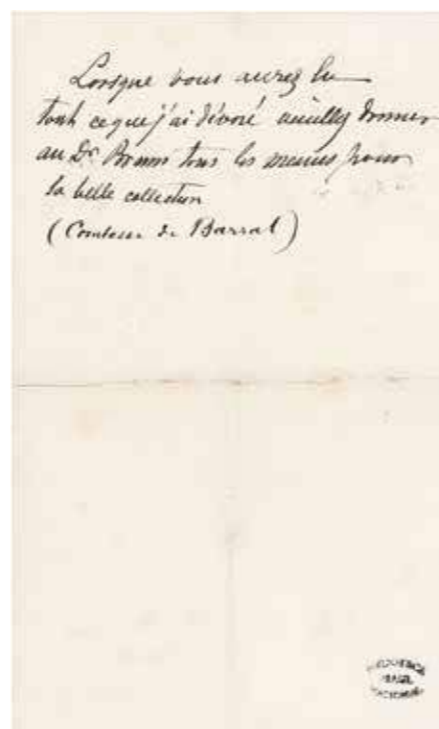 Lorsque vous aurez lu
tout ce que j'ai dévoré veuillez donner
au Dr tous les menus pour
la belle collection
(Comtesse de Barral)